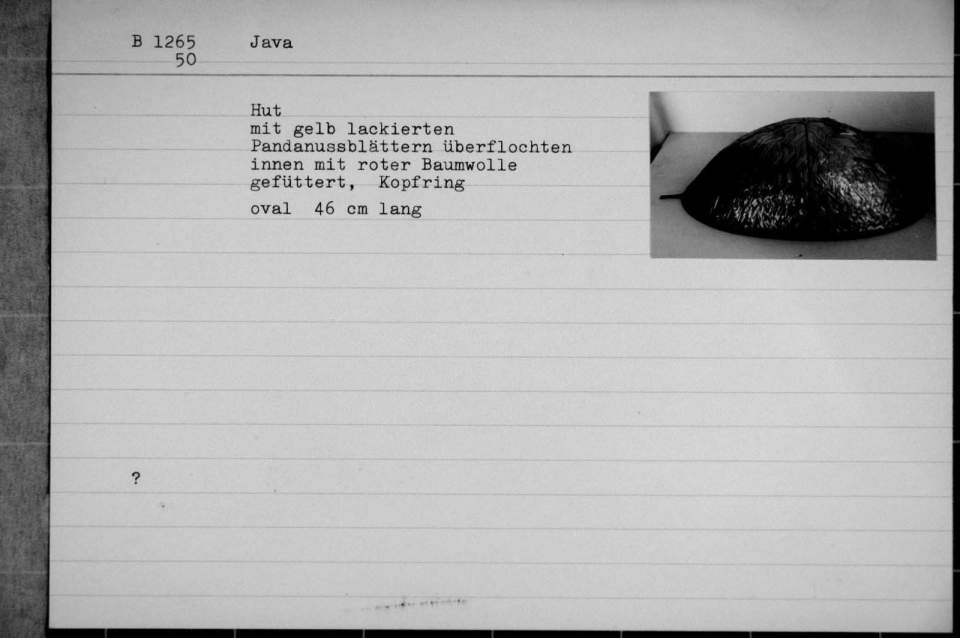 B 1265 Java
50
Hut
mit gelb lackierten
Pandanussblättern überflochten
innen mit roter Baumwolle
gefüttert, Kopfring
oval 46 cm lang
?